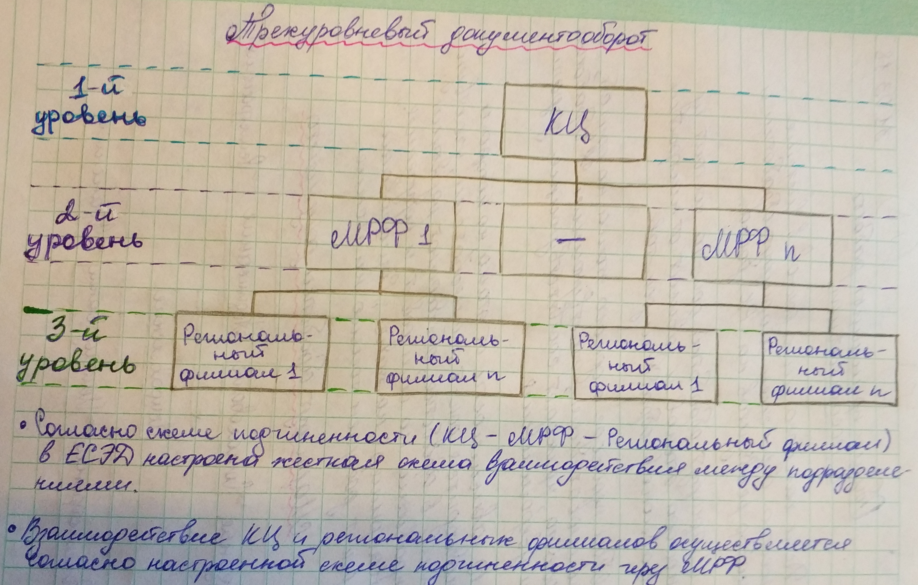 Трехуровневый документооборот
1-й
уровень
КЦ
2-й
уровень
МРФ 1
—
МРФ n
3-й
уровень
Региональ-
ный
филиал 1
Региональ-
ный
филиал n
Региональ-
ный
филиал 1
Региональ-
ный
филиал n
• Согласно схеме подчиненности (КЦ – МРФ – Региональный филиал)
в ЕСЭД настроена жесткая схема взаимодействия между подразделе-
ниями.
• Взаимодействие КЦ и региональных филиалов осуществляется
согласно настроенной схеме подчиненности МРФ.